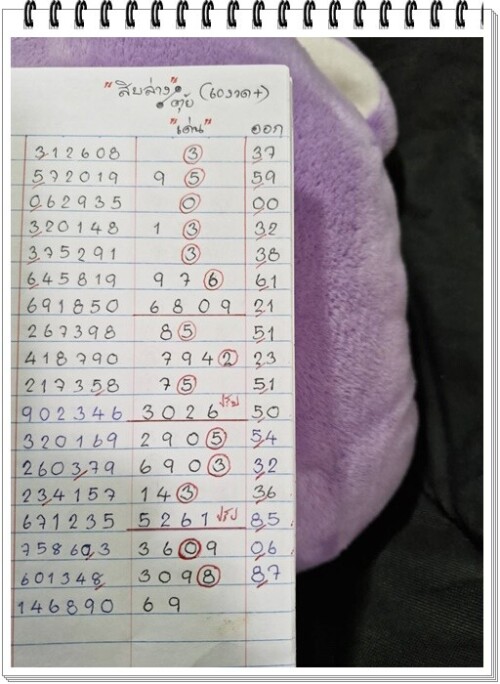 "สิบล่าง" (เอวาด+)
ตุ้ย
"เด่น" ออก
312608 3 37
572019 9 5 59
062935 0 00
320148 1 3 32
375291 3 38
645819 9 7 6 61
691850 6 8 0 9 21
267398 8 5 51
418790 7 9 4 2 23
217358 7 5 51
902346 3 0 2 6 50
320169 2 9 0 5 54
260379 6 9 0 3 32
234157 1 4 3 36
671235 5 2 6 1 85
758603 3 6 0 9 06
601348 3 0 9 8 87
146890 6 9